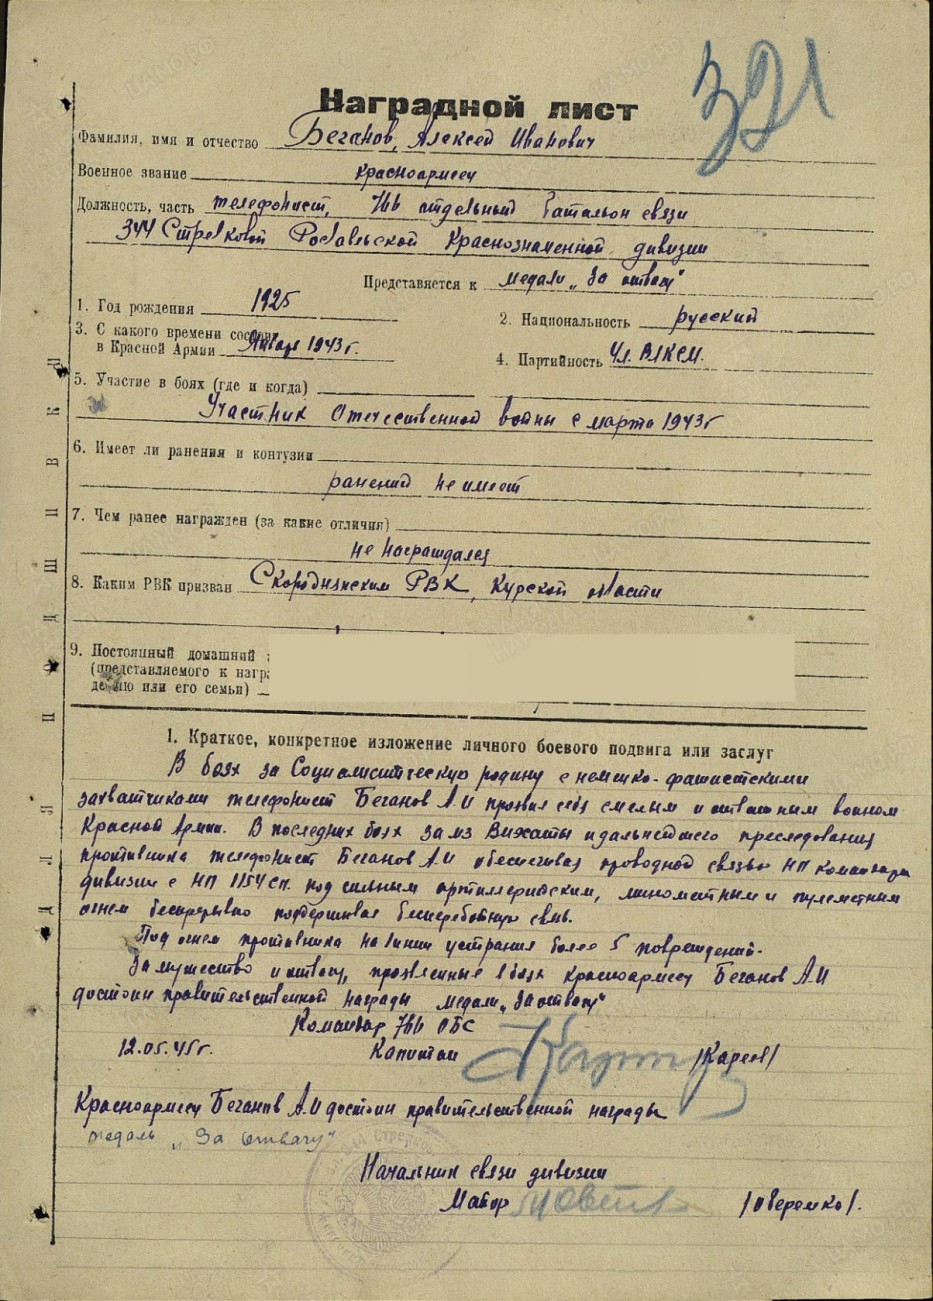 321
Наградной лист
Фамилия, имя и отчество Беганов, Алексей Иванович
Военное звание красноармеец
Должность, часть телефонист, 766 отдельный батальон связи
344 Стрелковой Рославльской Краснознаменной дивизии
Представляется к медали „За отвагу"
1. Год рождения 1925
2. Национальность русский
3. С какого времени состоит
в Красной Армии Январь 1943 г.
4. Партийность Чл. ВЛКСМ.
5. Участие в боях (где и когда)
Участник Отечественной войны с марта 1943 г
6. Имеет ли ранения и контузии
ранений не имеет
7. Чем ранее награжден (за какие отличия)
не награждался
8. Каким РВК призван Скороднянским РВК, Курской области
9. Постоянный домашний
(представляемого к нагр
дению или его семьи)
1. Краткое, конкретное изложение личного боевого подвига или заслуг
В боях за Социалистическую родину с немецко-фашистскими
захватчиками телефонист Беганов А.И проявил себя смелым и отважным воином
Красной Армии. В последних боях за мз Вихаты и дальнейшего преследования
противника телефонист Беганов А.И обеспечивая проводной связью НП командира
дивизии с НП 1154 сп. под сильным артиллерийским, минометным и пулеметным
огнем беспрерывно поддерживал бесперебойную связь.
Под огнем противника на линии устранил более 5 повреждений.
За мужество и отвагу, проявленные в боях красноармеец Беганов А.И
достоин правительственной награды медали „За отвагу"
Командир 766 ОБС
12.05.45г. Капитан /Карев/
Красноармеец Беганов А.И достоин правительственной награды
медаль „За отвагу"
Начальник связи дивизии
Майор /Оверемко/.